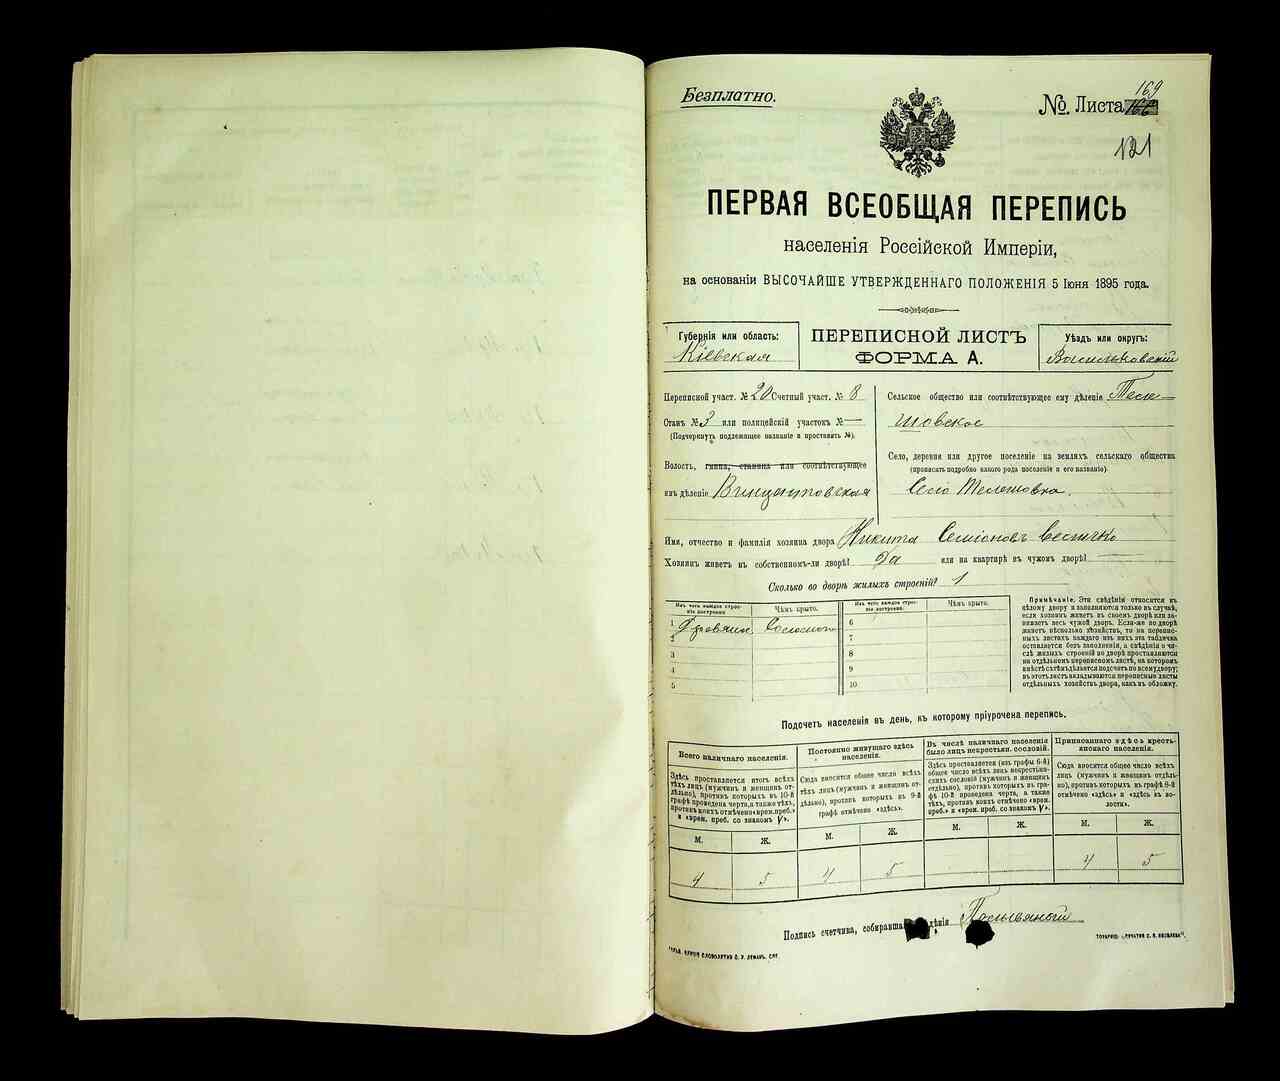 Безплатно.
№ Листа 169
121
ПЕРВАЯ ВСЕОБЩАЯ ПЕРЕПИСЬ
населенія Россійской Имперіи,
на основаніи ВЫСОЧАЙШЕ УТВЕРЖДЕННАГО ПОЛОЖЕНІЯ 5 Іюня 1895 года.
Губернія или область:
Кіевская
ПЕРЕПИСНОЙ ЛИСТЪ
ФОРМА А.
Уѣздъ или округъ:
Васильковскій
Переписной участ. № 20 Счетный участ. № 8
Станъ № 3 или полицейскій участокъ № —
(Подчеркнуть подлежащее названіе и проставить №).
Волость, гмина, станица или соотвѣтствующее
имъ дѣленіе Винцентовская
Сельское общество или соотвѣтствующее ему дѣленіе Теле-
шовское
Село, деревня или другое поселеніе на земляхъ сельскаго общества
(прописать подробно какого рода поселеніе и его названіе)
Село Телешовка.
Имя, отчество и фамилія хозяина двора Никита Семіоновъ
Хозяинъ живетъ въ собственномъ-ли дворѣ? Да или на квартирѣ въ чужомъ дворѣ? —
Сколько во дворѣ жилыхъ строеній? 1
Изъ чего каждое строе-
ніе построено.
Чѣмъ крыто.
1 Деревян. Соломою
2
3
4
5
Изъ чего каждое строе-
ніе построено.
Чѣмъ крыто.
6
7
8
9
10
Примѣчаніе. Эти свѣдѣнія относятся къ
цѣлому двору и заполняются только въ случаѣ,
если хозяинъ живетъ въ своемъ дворѣ или за-
нимаетъ весь чужой дворъ. Если-же по дворѣ
живетъ нѣсколько хозяйствъ, то на перепис-
ныхъ листахъ каждаго изъ нихъ эта табличка
оставляется безъ заполненія, а свѣдѣнія о чи-
слѣ жилыхъ строеній во дворѣ проставляются
на отдѣльномъ переписномъ листѣ, на которомъ
вмѣстѣ съ тѣмъ дѣлается подсчетъ по всему двору;
въ этотъ листъ вкладываются переписные листы
отдѣльныхъ хозяйствъ двора, какъ въ обложку.
Подсчетъ населенія въ день, къ которому пріурочена перепись.
Всего наличнаго населенія.
Здѣсь проставляется итогъ всѣхъ
тѣхъ лицъ (мужчинъ и женщинъ от-
дѣльно), противъ которыхъ въ 10-й
графѣ проведена черта, а также тѣхъ,
противъ коихъ отмѣчено «врем. преб.»
и «врем. преб. со знакомъ V».
М. Ж.
4 5
Постоянно живущаго здѣсь
населенія.
Сюда вносится общее число всѣхъ
тѣхъ лицъ (мужчинъ и женщинъ от-
дѣльно), противъ которыхъ въ 9-й
графѣ отмѣчено «здѣсь».
М. Ж.
4 5
Въ числѣ наличнаго населенія
было лицъ некрестьян. сословій.
Здѣсь проставляется (изъ графы 6-й)
общее число всѣхъ лицъ некрестьян-
скихъ сословій (мужчинъ и женщинъ
отдѣльно), противъ которыхъ въ гра-
фѣ 10-й проведена черта, а также
тѣхъ, противъ коихъ отмѣчено «врем.
преб.» и «врем. преб. со знакомъ V».
М. Ж.
Приписаннаго здѣсь кресть-
янскаго населенія.
Сюда вносится общее число всѣхъ
лицъ (мужчинъ и женщинъ отдѣль-
но), противъ которыхъ въ графѣ 8-й
отмѣчено «здѣсь» и «здѣсь въ во-
лости».
М. Ж.
4 5
Подпись счетчика, собиравша дѣнія
СЛОВОЛИТНЯ О. И. ЛЕМАНЪ, СПБ.
ТОВАРИЩ. „ПЕЧАТНЯ С. П. ЯКОВЛЕВА".